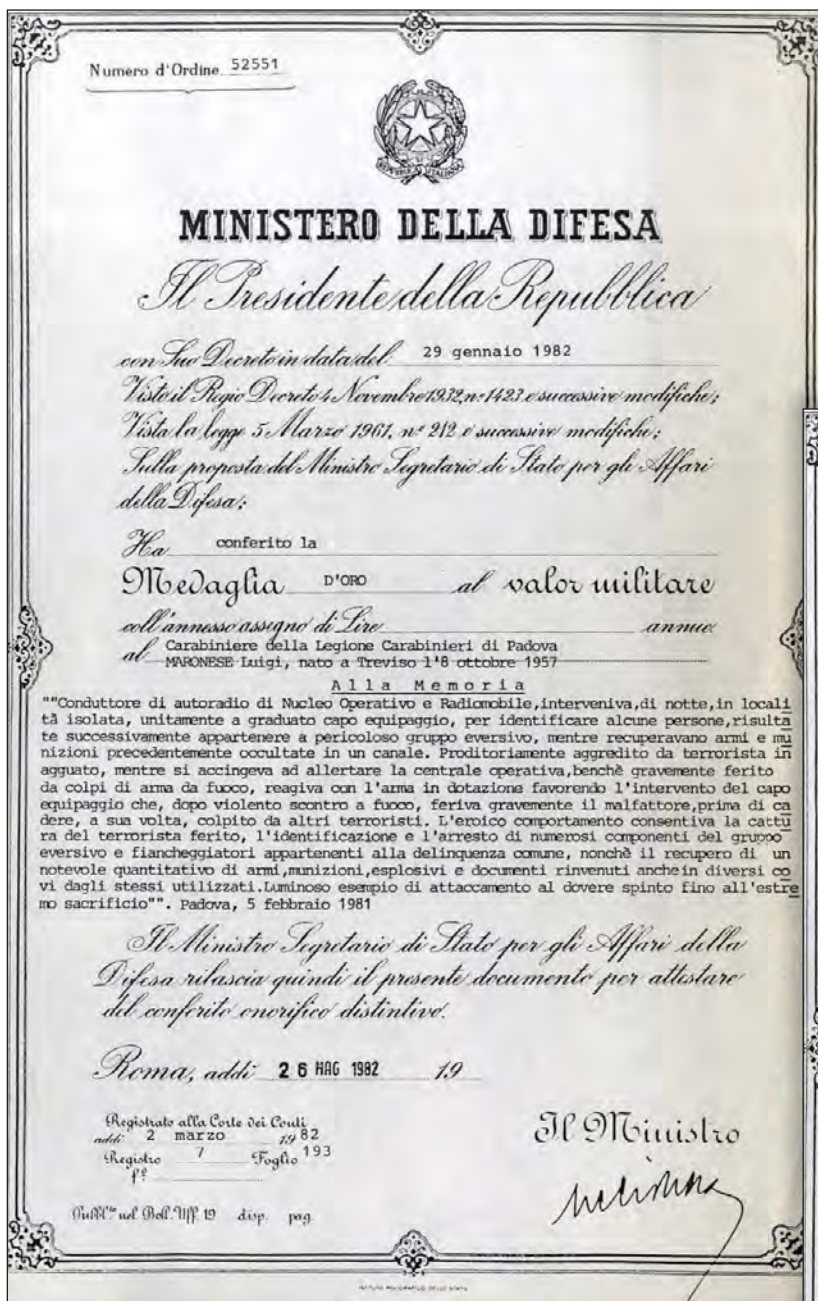 Numero d'Ordine 52551
REPUBBLICA ITALIANA
MINISTERO DELLA DIFESA
Il Presidente della Repubblica
con Suo Decreto in data del 29 gennaio 1982
Visto il Regio Decreto 4 Novembre 1932, n° 1423 e successive modifiche;
Vista la legge 5 Marzo 1961, n° 212 e successive modifiche;
Sulla proposta del Ministro Segretario di Stato per gli Affari
della Difesa;
Ha conferito la
Medaglia D'ORO al valor militare
coll'annesso assegno di Lire annue
al Carabiniere della Legione Carabinieri di Padova
MARONESE Luigi, nato a Treviso l'8 ottobre 1957
Alla Memoria
""Conduttore di autoradio di Nucleo Operativo e Radiomobile,interveniva,di notte,in locali
tà isolata, unitamente a graduato capo equipaggio, per identificare alcune persone,risulta
te successivamente appartenere a pericoloso gruppo eversivo, mentre recuperavano armi e mu
nizioni precedentemente occultate in un canale. Proditoriamente aggredito da terrorista in
agguato, mentre si accingeva ad allertare la centrale operativa,benchè gravemente ferito
da colpi di arma da fuoco, reagiva con l'arma in dotazione favorendo l'intervento del capo
equipaggio che, dopo violento scontro a fuoco, feriva gravemente il malfattore,prima di ca
dere, a sua volta, colpito da altri terroristi. L'eroico comportamento consentiva la cattu
ra del terrorista ferito, l'identificazione e l'arresto di numerosi componenti del gruppo
eversivo e fiancheggiatori appartenenti alla delinquenza comune, nonchè il recupero di un
notevole quantitativo di armi,munizioni,esplosivi e documenti rinvenuti anche in diversi co
vi dagli stessi utilizzati.Luminoso esempio di attaccamento al dovere spinto fino all'estre
mo sacrificio"". Padova, 5 febbraio 1981
Il Ministro Segretario di Stato per gli Affari della
Difesa rilascia quindi il presente documento per attestare
del conferito onorifico distintivo.
Roma, addì 26 MAG 1982 19
Registrato alla Corte dei Conti
addì 2 marzo 1982
Registro 7 Foglio 193
f.°
Il Ministro
Pubbl.to nel Boll. Uff. 19 disp. pag.
ISTITUTO POLIGRAFICO DELLO STATO